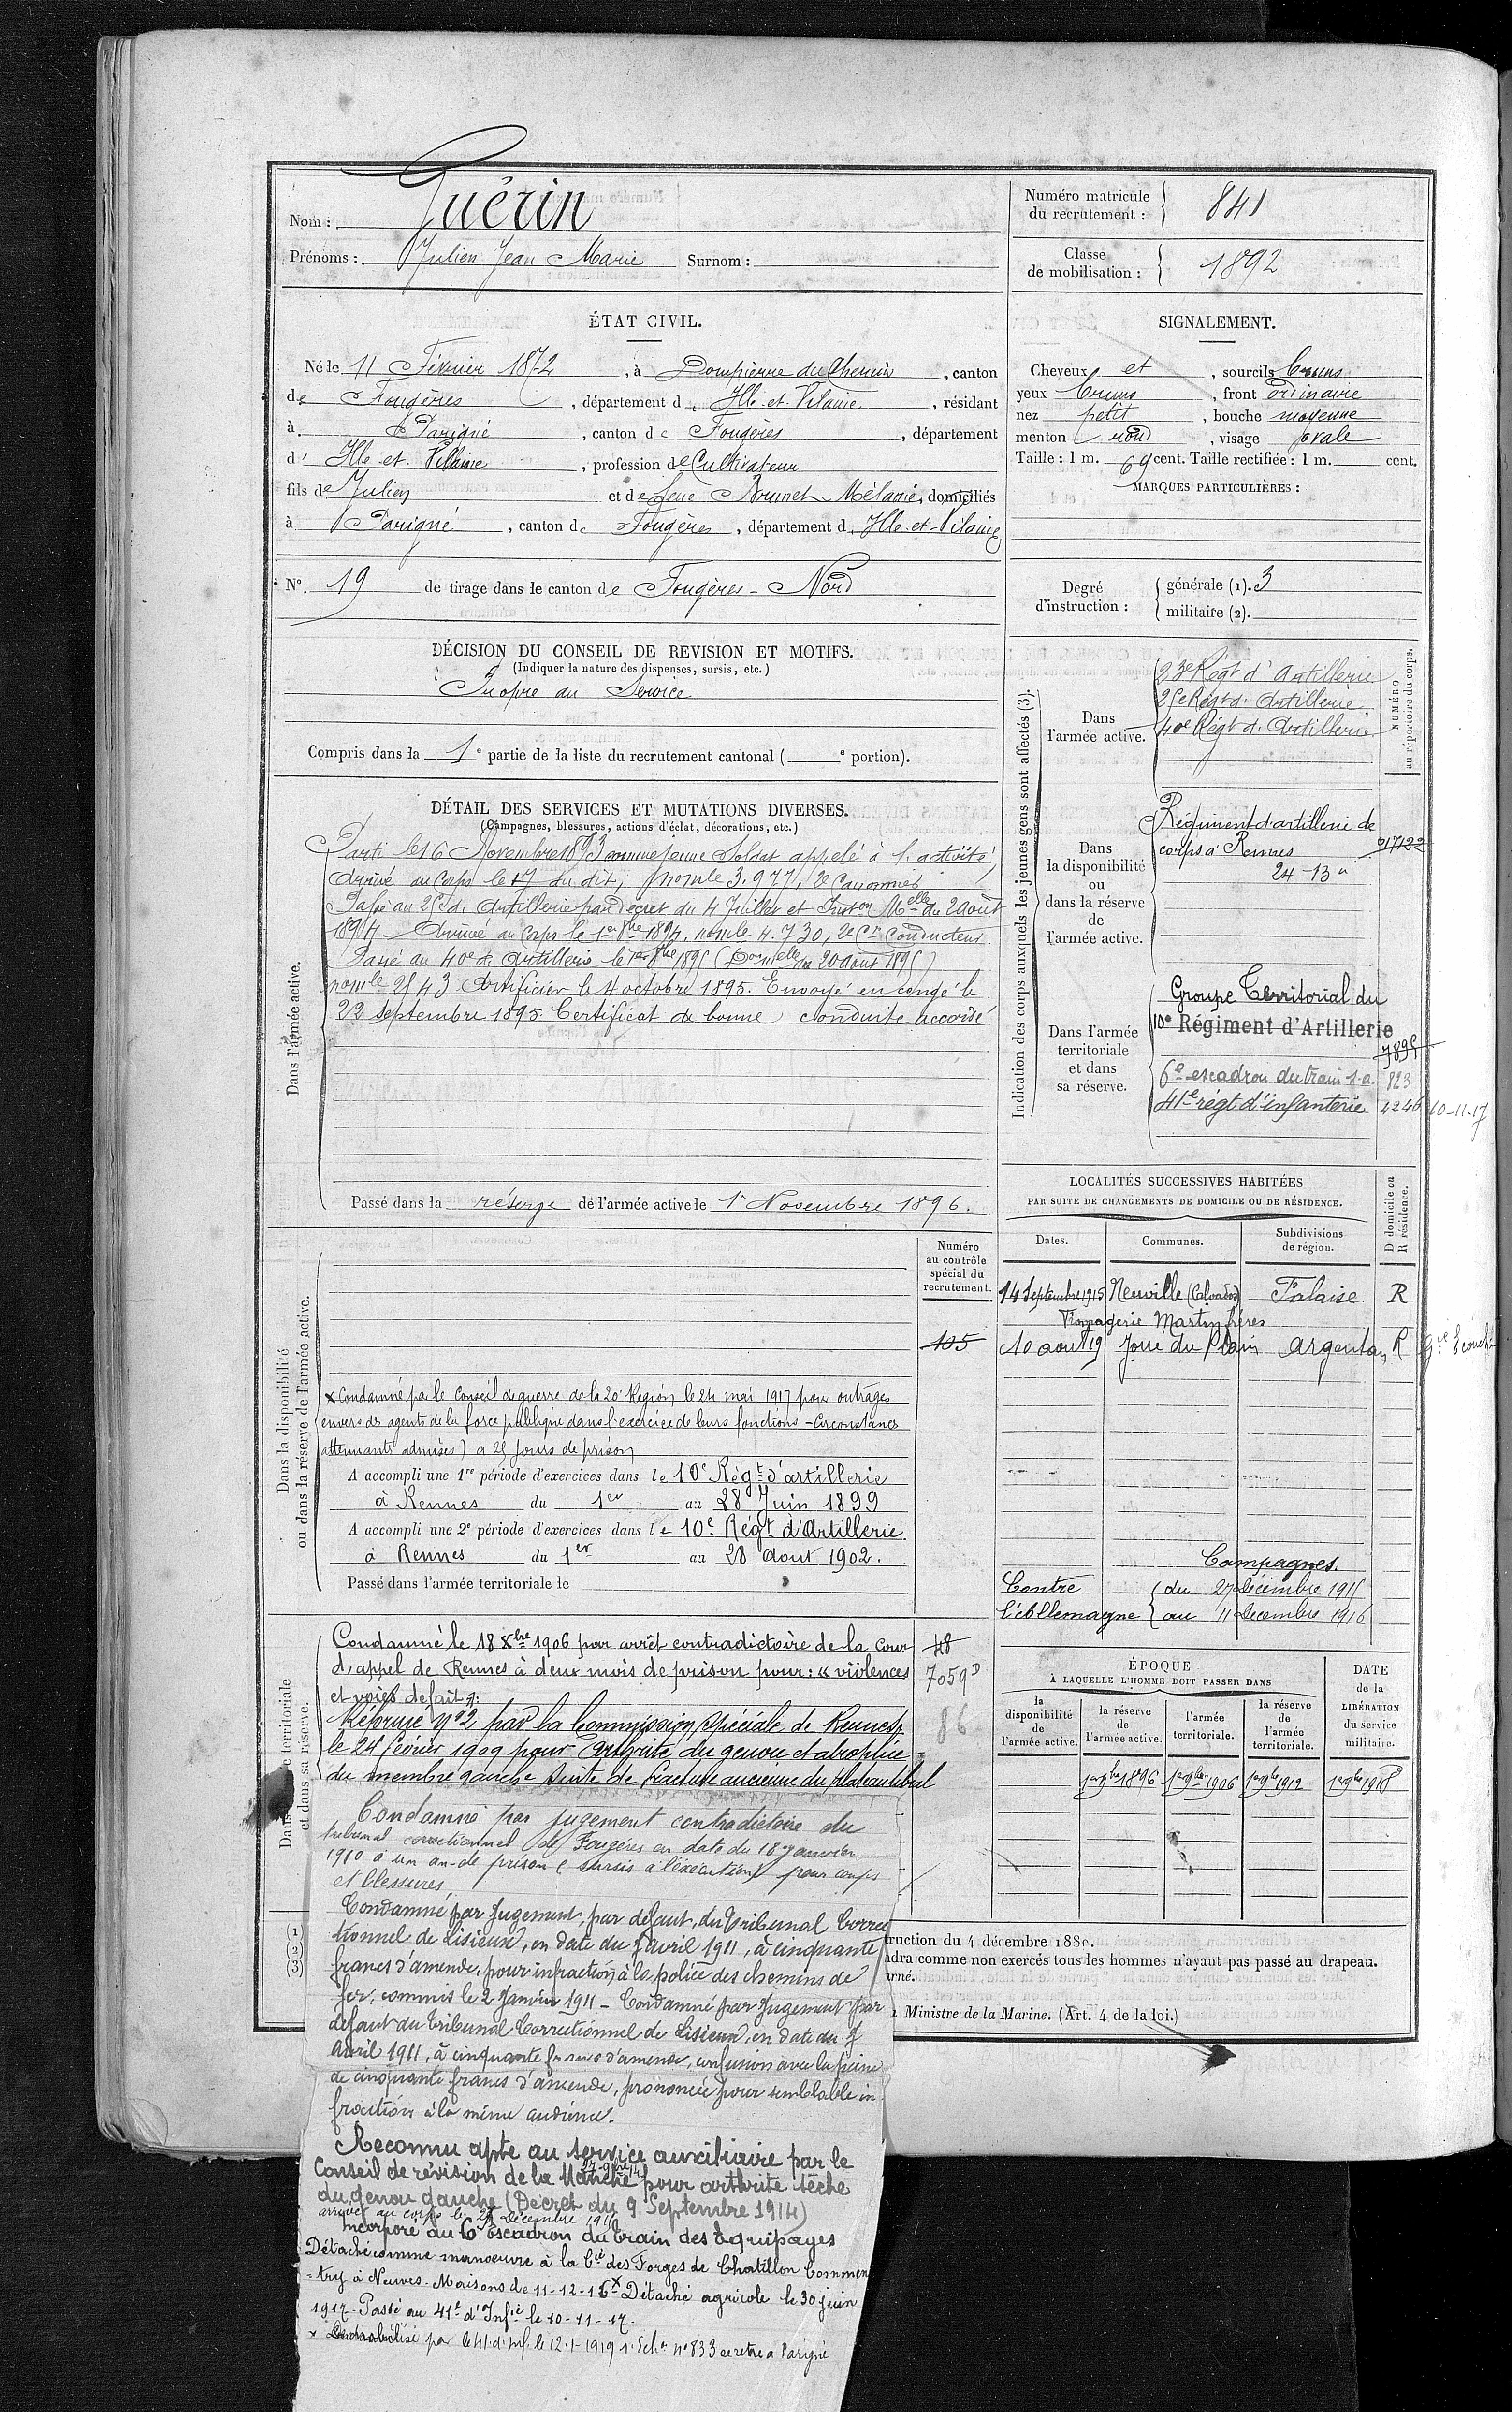 Nom : Guérin
Prénoms : Julien Jean Marie Surnom :
Numéro matricule du recrutement : 841
Classe de mobilisation : 1892
ÉTAT CIVIL.
Né le 11 Février 1872, à Dompierre du Chemin, canton
de Fougères, département d Ille-et-Vilaine, résidant
à Parigné, canton de Fougères, département
d' Ille-et-Vilaine, profession de Cultivateur
fils de Julien et de feue Brunet Mélanie, domiciliés
à Parigné, canton de Fougères, département d Ille-et-Vilaine
N°. 19 de tirage dans le canton de Fougères-Nord
SIGNALEMENT.
Cheveux et, sourcils bruns
yeux bruns, front ordinaire
nez petit, bouche moyenne
menton rond, visage ovale
Taille : 1 m. 69 cent. Taille rectifiée : 1 m. cent.
MARQUES PARTICULIÈRES :
Degré d'instruction : générale (1). 3
militaire (2).
DÉCISION DU CONSEIL DE REVISION ET MOTIFS.
(Indiquer la nature des dispenses, sursis, etc.)
Propre au Service
Compris dans la 1e partie de la liste du recrutement cantonal ( e portion).
DÉTAIL DES SERVICES ET MUTATIONS DIVERSES.
(Campagnes, blessures, actions d'éclat, décorations, etc.)
Dans l'armée active.
Parti le 16 Novembre 1893 comme jeune Soldat appelé à l'activité,
Arrivé au Corps le 17 du dit, nomle 3.977, 2e Canonnier
Passé au 25e d. Artillerie par décret du 4 Juillet et Inston Melle du 2 août
1894. Arrivé au Corps le 1er 8bre 1894, nomle 4.730, 2e Cr Conducteur.
Passé au 40e d. Artillerie le 1er 8bre 1895 (Don melle du 20 août 1895)
nomle 2543. Artificier le 4 octobre 1895. Envoyé en congé le
22 septembre 1895. Certificat de bonne conduite accordé
Passé dans la réserve de l'armée active le 1r Novembre 1896.
Indication des corps auxquels les jeunes gens sont affectés (3).
NUMÉRO au répertoire du corps.
Dans l'armée active.
23e Régt d'Artillerie
25e Régt d. Artillerie
40e Régt d. Artillerie
Dans la disponibilité ou dans la réserve de l'armée active.
Régiment d'artillerie de
corps à Rennes 017122
24-13
Dans l'armée territoriale et dans sa réserve.
Groupe Territorial du
10e Régiment d'Artillerie
7895
6e escadron du train s.a. 823
41e régt d'infanterie 4246 10-11-17
LOCALITÉS SUCCESSIVES HABITÉES
PAR SUITE DE CHANGEMENTS DE DOMICILE OU DE RÉSIDENCE.
Dates. Communes. Subdivisions de région. D domicile ou R résidence.
14 Septembre 1915 Neuville (Calvados) Falaise R
Fromagerie Martin frères
10 aout 19 Joué du Plain Argentan R
Campagnes.
Contre l'Allemagne du 27 Décembre 1915
au 11 décembre 1916
Dans la disponibilité ou dans la réserve de l'armée active.
Numéro au contrôle spécial du recrutement.
105
x Condamné par le Conseil de guerre de la 20e Région le 24 mai 1917 pour outrages
envers des agents de la force publique dans l'exercice de leurs fonctions - Circonstances
attenuantes admises) a 25 Jours de prison
A accompli une 1re période d'exercices dans le 10e Régt d'artillerie
à Rennes du 1er au 28 Juin 1899
A accompli une 2e période d'exercices dans le 10e Régt d'Artillerie.
à Rennes du 1er au 28 Aout 1902.
Passé dans l'armée territoriale le
Condamné le 18 Xbre 1906 par arrêt contradictoire de la Cour
d'appel de Rennes à deux mois de prison pour : "violences
et voies de fait".
48
7059D
86
Réformé N°2 par la Commission spéciale de Rennes
le 24 février 1909 pour arthrite du genou et atrophie
du membre gauche suite de fracture ancienne du plateau tibial
Condamné par jugement contradictoire du
tribunal correctionnel de Fougères en date du 18 janvier
1910 à un an de prison (sursis à l'exécution) pour coups
et blessures
Condamné par Jugement, par défaut, du Tribunal Correc
tionnel de Lisieux, en date du 7 avril 1911, à cinquante
francs d'amende, pour infraction à la police des chemins de
fer, commis le 2 Janvier 1911 - Condamné par Jugement par
défaut du Tribunal Correctionnel de Lisieux, en date du 7
Avril 1911, à cinquante francs d'amende, confusion avec la peine
de cinquante francs d'amende, prononcée pour semblable in-
fraction à la même audience.
Reconnu apte au service auxiliaire par le
Conseil de révision de la Manche pour arthrite sèche
du genou gauche (Décret du 9 Septembre 1914)
arrivé au corps le 27 décembre 1915
Incorporé au 6e Escadron du Train des Equipages
Détaché comme manoeuvre à la Cie des Forges de Chatillon Commen
-try à Neuves-Maisons de 11-12-16 x Détaché agricole le 30 juin
1917. Passé au 41e d'Infie le 10-11-17.
x Démobilisé par le 41 d'Inf. le 12-1-1919 1r Echn N°833 se retire a Parigné
ÉPOQUE
À LAQUELLE L'HOMME DOIT PASSER DANS
la disponibilité de l'armée active. la réserve de l'armée active. l'armée territoriale. la réserve de l'armée territoriale.
DATE de la LIBÉRATION du service militaire.
1er 9bre 1896 1er 9bre 1906 1er 9bre 1912 1er 9bre 1918
(1)
(2)
(3)
truction du 4 décembre 1889.
ndra comme non exercés tous les hommes n'ayant pas passé au drapeau.
urné.
Ministre de la Marine. (Art. 4 de la loi.)